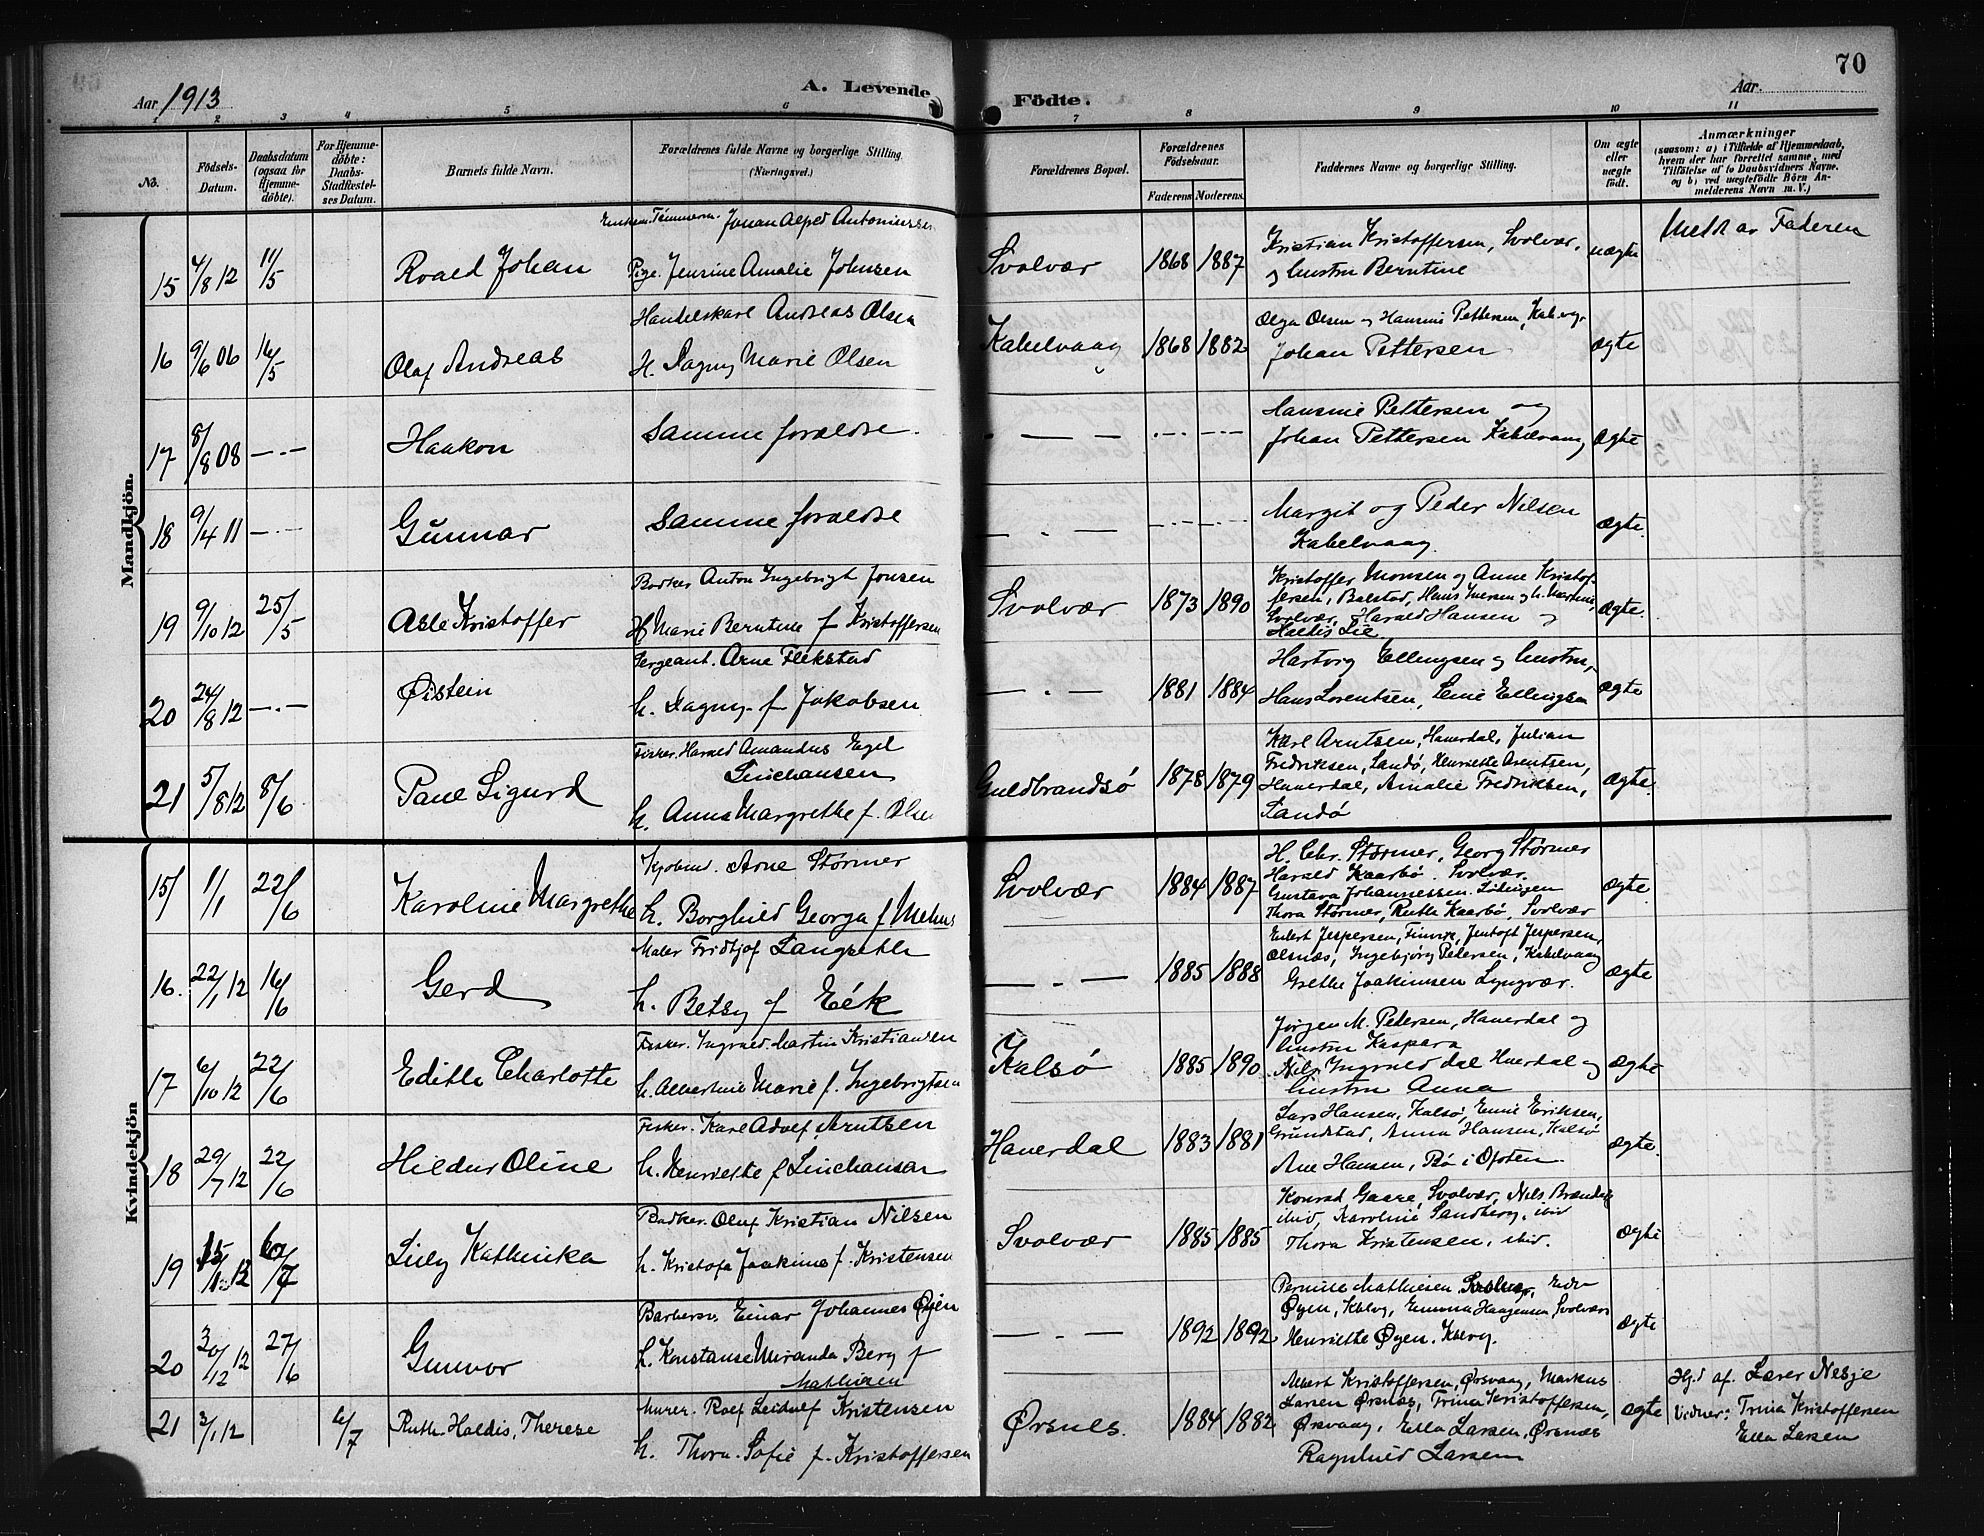 70
Aar 1913
A. Levende
Födte.
Aar.
1 2 3 4 5 6 7 8 9 10 11
No.
Födsels-
Datum.
Daabsdatum
(ogsaa for
Hjemme-
döbte).
For Hjemme-
döbte:
Daabs-
Stadfæstel-
ses Datum.
Barnets fulde Navn.
Forældrenes fulde Navne og borgerlige Stilling.
(Næringsvei.)
Forældrenes Bopæl.
Forældrenes
Födselsaar.
Faderens Moderens.
Faddernes Navne og borgerlige Stilling.
Om ægte
eller
uægte
födt.
Anmærkninger
(saasom: a) i Tilfælde af Hjemmedaab,
hvem der har forrettet samme, med
Tilföielse af to Daabsvidners Navne.
og b) ved uægtefödte Börn An-
melderens Navn m. V.)
Mandkjön.
Johan Alfred Antoniussen
15 4/8 12 11/5 Roald Johan Pige. Jensine Amalie Johnsen
Svolvær 1868 1887 Kristian Kristoffersen, Svolvær,
og hustru Berntine
uægte
Meldt av Faderen
Handelskarl Andreas Olsen
16 9/6 06 16/5 Olaf Andreas H. Dagny Marie Olsen
Kabelvaag 1868 1882 Olga Olsen og Hansine Pettersen, Kabelvg.
Johan Pettersen
ægte
17 8/8 08 — . — Haakon Samme forældre.
— . — Hansine Pettersen og
Johan Pettersen Kabelvaag ægte
18 9/4 11 — . — Gunnar Samme forældre
— . — Margit og Peder Nilsen
Kabelvaag. ægte.
Bødker Anton Ingebrigt Jonsen
19 9/10 12 25/5 Asle Kristoffer H. Marie Berntine f Kristoffersen
Svolvær 1873 1890 Kristoffer Monsen og Anne Kristof-
fersen, Balstad, Hans Iversen og h.
Svolvær, Harald Hansen og
Haldis Lie
ægte.
Sergeant. Arne Flekstad
20 24/8 12 — . — Øistein h. Dagny f Jakobsen
— . — 1881 1884 Hartvig Ellingsen og hustru,
Hans Lorentsen, Lene Ellingsen ægte
Fisker. Harald Amandus Egel
Linchausen
21 5/8 12 8/6 Paul Sigurd h. Anna Margrethe f. Olsen
Guldbrandsø 1878 1879 Karl Arntsen, Haverdal, Julian
Fredriksen, Sandø, Henriette Arentsen,
Haverdal, Amalie Fredriksen,
Sandø
ægte.
Kvindekjön
Kjøbmd. Arne Størmer
15/ 1/1 22/6 Karoline Margrethe h. Borghild Georga f Mehus
Svolvær 1884 1887 H. Chr. Størmer, Georg Størmer
Harald Kaarbø. Svolvær.
Gustava Johannessen. Lødingen
Thora Størmer, Ruth Kaarbø, Svolvær
ægte
Maler Fridtjof Langseth
16. 22/1 12 16/6 Gerd h. Betsy f Eék
— . — 1885 1888 Eilert Jespersen, Finvik, Jentoft Jespersen,
Olsnæs, Ingebjørg Petersen, Kabelvaag
Grethe Joakimsen Lyngvær.
ægte
Fisker. Ingvald Martin Kristiansen
17 6/10 12 22/6 Edith Charlotte h. Albertine Marie f. Ingebrigtsen
Kalsø 1885 1890 Jørgen M. Pedersen, Haverdal og
hustru Kaspara
Nils Ingvald dal Haverdal og
hustru Anna
ægte
Fisker. Karl Adolf Arntsen
18 29/7 12 22/6 Hildur Oline h. Henriette f Linchausen
Haverdal 1883 1881 Lars Hansen, Kalsø, Emil Eriksen,
Grundstad, Anna Hansen, Kalsø
Ane Hansen, Bø i Ofoten
ægte.
Bødker. Oluf Kristian Nilsen
19 Lily Kathinka h. Kristofa Joakima f. Kristensen
Svolvær 1885 1885 Konrad Gaare, Svolvær, Nils Brændal
ibid, Karoline Sandberg, ibid
Thora Kristensen, ibid.
ægte
Barberer. Einar Johannes Øyen
20 30/12 12 27/6 Gunvor h. Konstanse Miranda Berg f
Mathisen
— . — 1892 1892 Pernille Mathisen Svolvær,
Øyen, Kbvg, Emma Haagensen Svolvær
Henriette Øyen. Kbvg.
ægte
Murer. Rolf Leidulf Kristensen
21 2/1 12 6/7 Ruth. Haldis, Therese h. Thora. Sofie f. Kristoffersen
Ørsnes. 1884 1882 Albert Kristoffersen, Ørsvaag, Markus
Larsen Ørsnæs, Trina Kristoffersen,
Ørsvaag, Ella Larsen, Ørsnæs
Ragnhild Larsen
ægte
Hjd af. Lærer Nesje
Vidner: Trina Kristoffersen
Ella Larsen